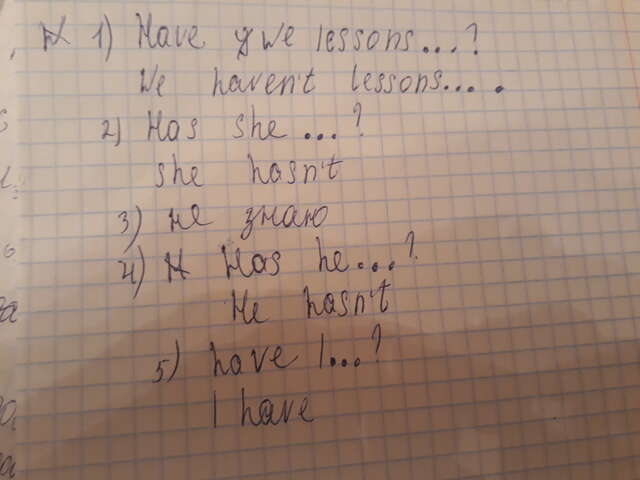 1) Have we lessons....?
We haven't lessons.....
2) Has she ...?
she hasn't
3) не знаю
4) Has he....?
He hasn't
5) have I....?
I have